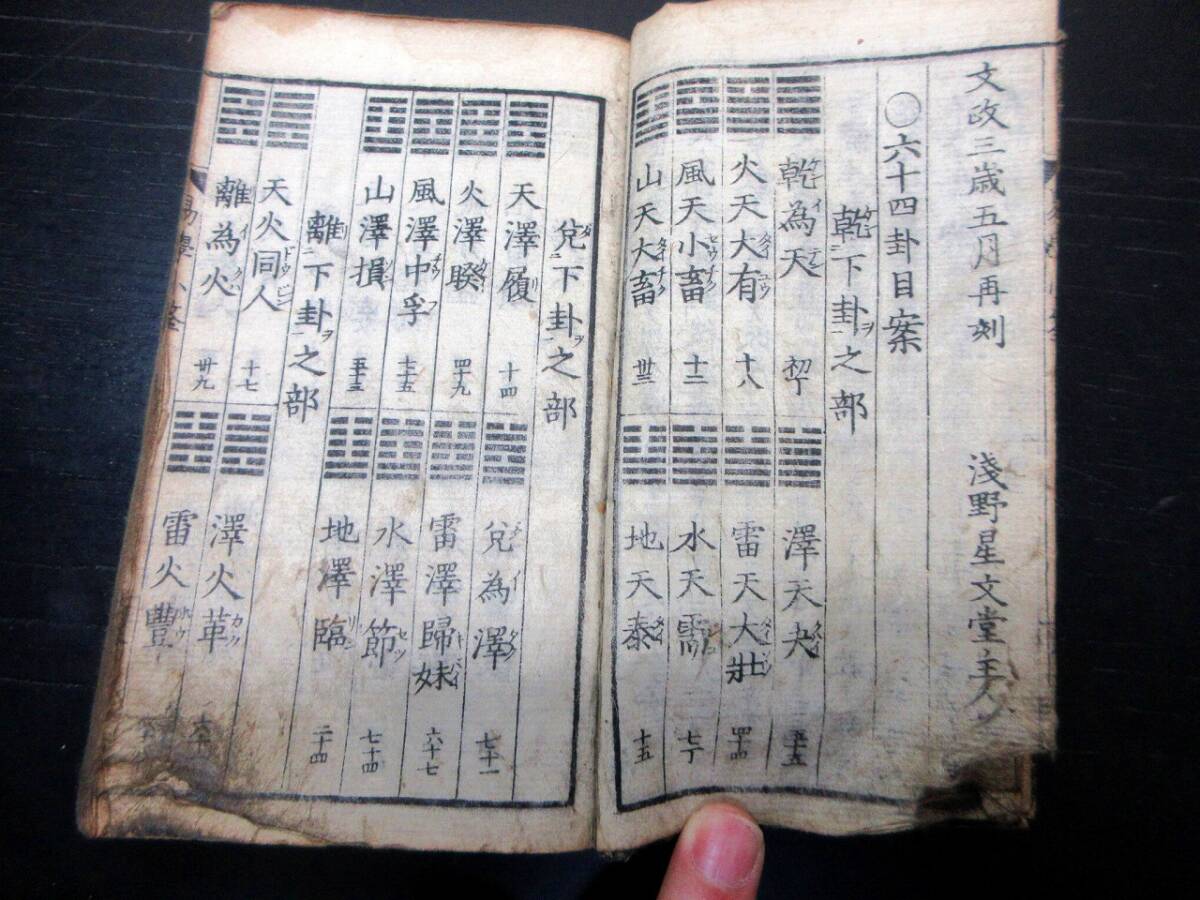 文政三歳五月再刻 淺野星文堂主人
〇六十四卦目案
乾下卦ヲ之部
乾為天 初丁
澤天夬 五十五
火天大有 十八
雷天大壯 四十四
風天小畜 十二
水天需 七丁
山天大畜 卅三
地天泰 十五
兌下卦ヲ之部
天澤履 十四
兌為澤 七十一
火澤睽 四十九
雷澤歸妹 六十七
風澤中孚 七十五
水澤節 七十四
山澤損 五十三
地澤臨 二十四
離下卦ヲ之部
天火同人 十七
澤火革
離為火 卅九
雷火豐